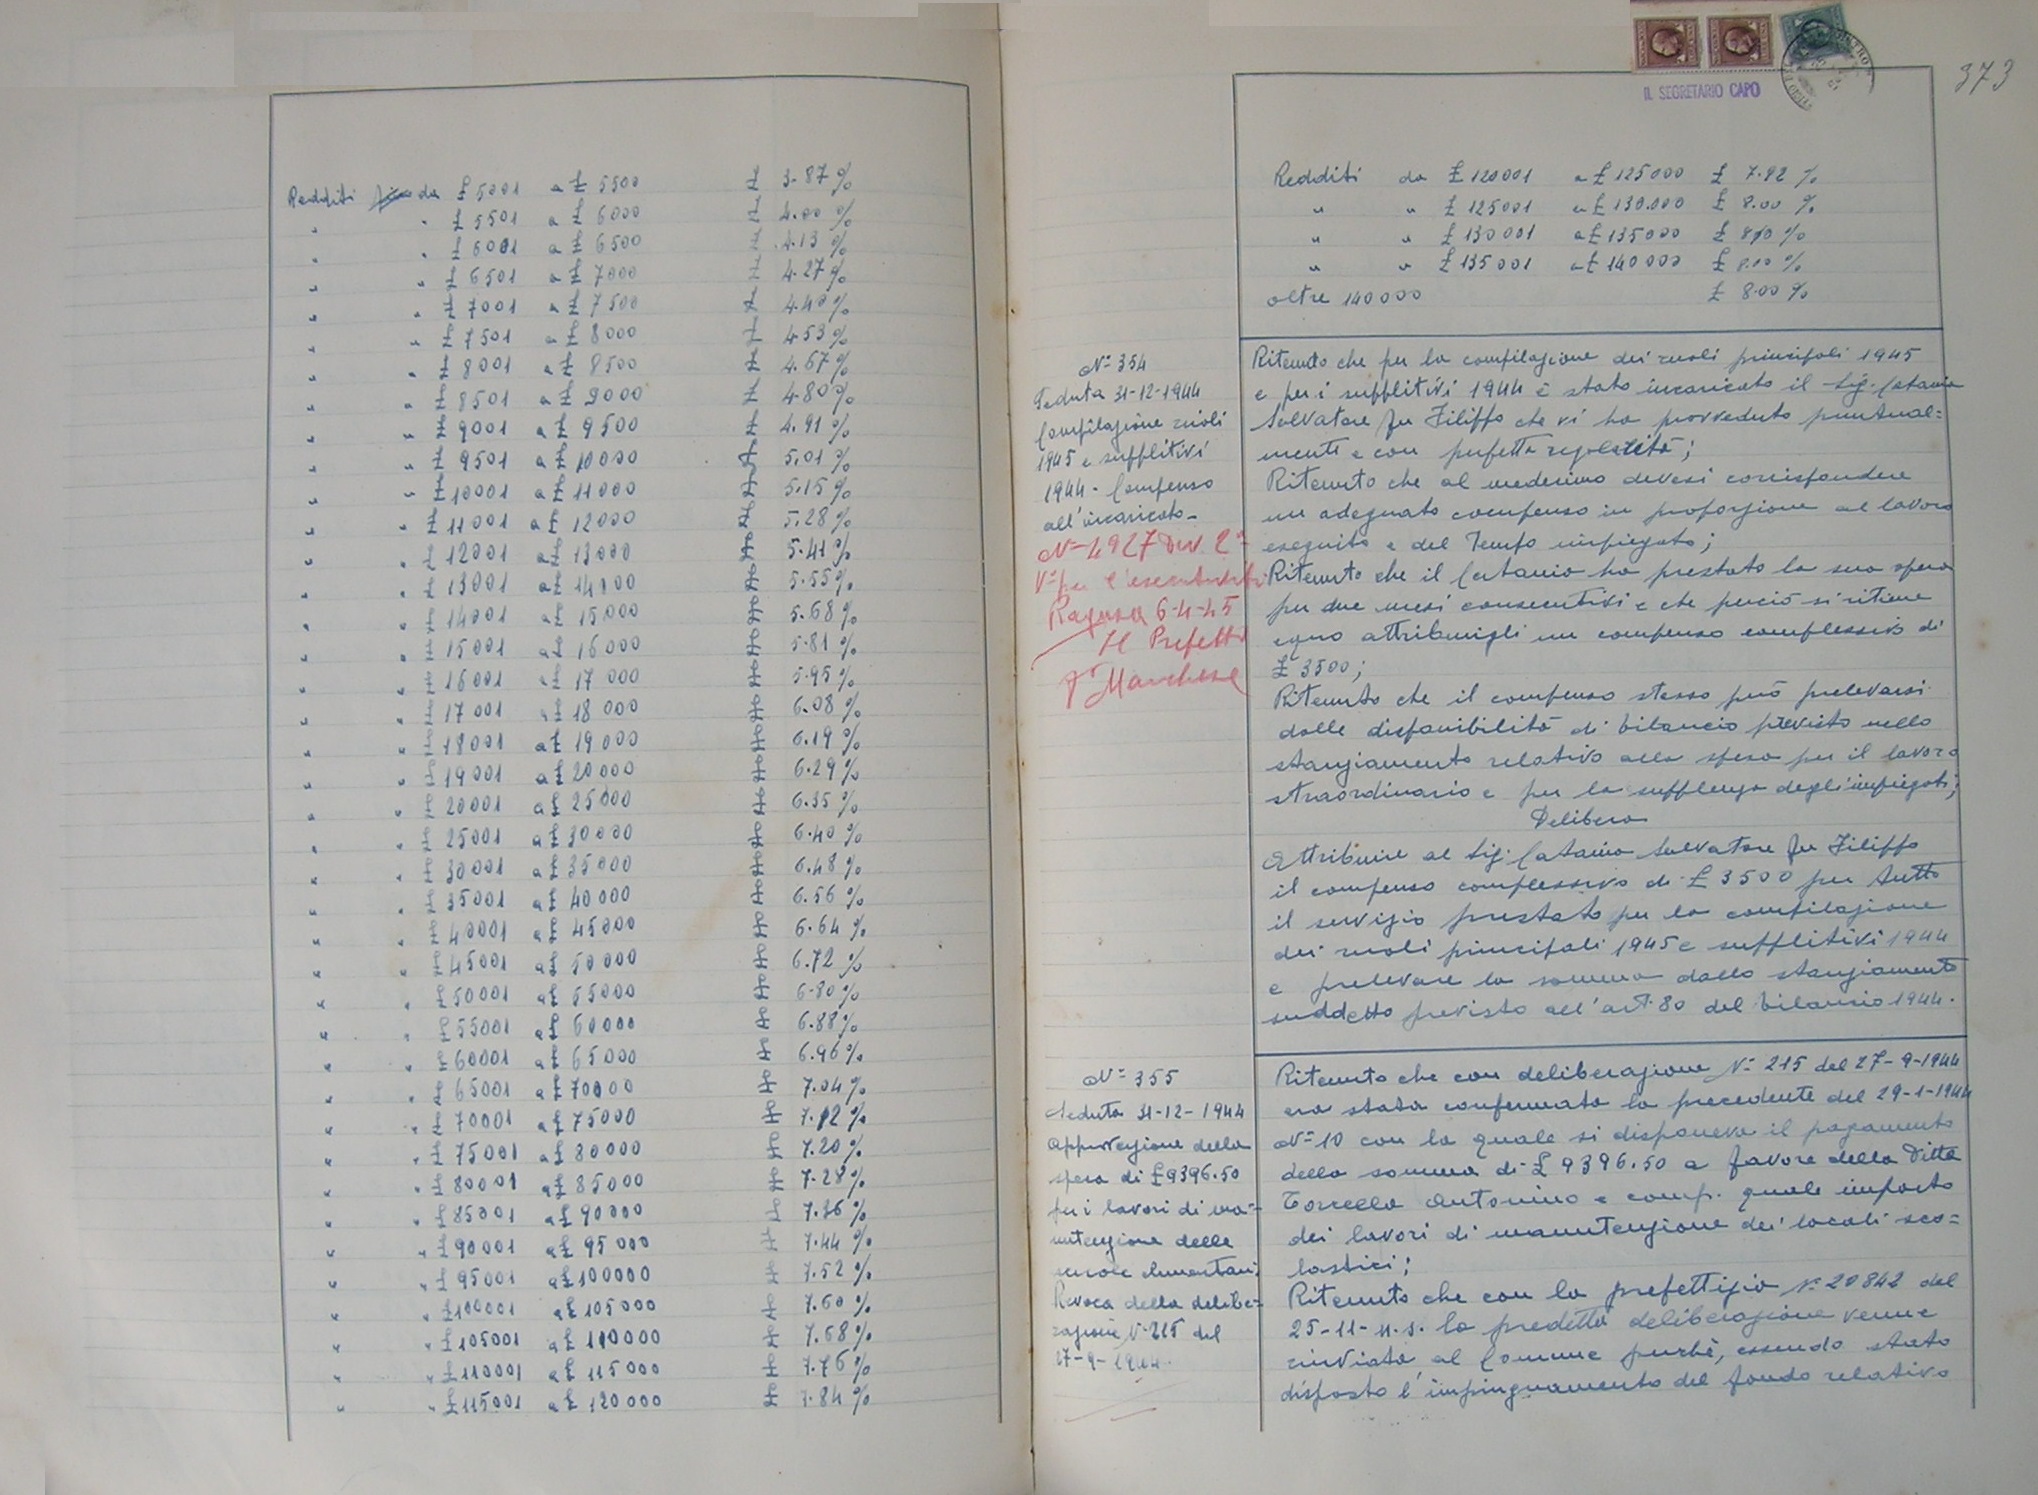 Redditi da £ 5001 a £ 5500 £ 3.87 %
" " £ 5501 a £ 6000 £ 4.00 %
" " £ 6001 a £ 6500 £ 4.13 %
" " £ 6501 a £ 7000 £ 4.27 %
" " £ 7001 a £ 7500 £ 4.40 %
" " £ 7501 a £ 8000 £ 4.53 %
" " £ 8001 a £ 8500 £ 4.67 %
" " £ 8501 a £ 9000 £ 4.80 %
" " £ 9001 a £ 9500 £ 4.91 %
" " £ 9501 a £ 10000 £ 5.01 %
" " £ 10001 a £ 11000 £ 5.15 %
" " £ 11001 a £ 12000 £ 5.28 %
" " £ 12001 a £ 13000 £ 5.41 %
" " £ 13001 a £ 14000 £ 5.55 %
" " £ 14001 a £ 15000 £ 5.68 %
" " £ 15001 a £ 16000 £ 5.81 %
" " £ 16001 a £ 17000 £ 5.95 %
" " £ 17001 a £ 18000 £ 6.08 %
" " £ 18001 a £ 19000 £ 6.19 %
" " £ 19001 a £ 20000 £ 6.29 %
" " £ 20001 a £ 25000 £ 6.35 %
" " £ 25001 a £ 30000 £ 6.40 %
" " £ 30001 a £ 35000 £ 6.48 %
" " £ 35001 a £ 40000 £ 6.56 %
" " £ 40001 a £ 45000 £ 6.64 %
" " £ 45001 a £ 50000 £ 6.72 %
" " £ 50001 a £ 55000 £ 6.80 %
" " £ 55001 a £ 60000 £ 6.88 %
" " £ 60001 a £ 65000 £ 6.96 %
" " £ 65001 a £ 70000 £ 7.04 %
" " £ 70001 a £ 75000 £ 7.12 %
" " £ 75001 a £ 80000 £ 7.20 %
" " £ 80001 a £ 85000 £ 7.28 %
" " £ 85001 a £ 90000 £ 7.36 %
" " £ 90001 a £ 95000 £ 7.44 %
" " £ 95001 a £ 100000 £ 7.52 %
" " £ 100001 a £ 105000 £ 7.60 %
" " £ 105001 a £ 110000 £ 7.68 %
" " £ 110001 a £ 115000 £ 7.76 %
" " £ 115001 a £ 120000 £ 7.84 %
373
IL SEGRETARIO CAPO
Redditi da £ 120001 a £ 125000 £ 7.92 %
" " £ 125001 a £ 130.000 £ 8.00 %
" " £ 130001 a £ 135000 £ 8.00 %
" " £ 135001 a £ 140000 £ 8.00 %
oltre 140000 £ 8.00 %
N° 354
Seduta 31-12-1944
Compilazione ruoli
1945 e suppletivi
1944 - Compenso
all'incaricato -
N° 4927 Div. 2ª
V° per l'esecutorietà
Ragusa 6-4-45
Il Prefetto
Marchese
Ritenuto che per la compilazione dei ruoli principali 1945
e per i supplitivi 1944 è stato incaricato il Sig. Catania
Salvatore fu Filippo che vi ha provveduto puntual=
mente e con perfetta regolarità;
Ritenuto che al medesimo devesi corrispondere
un adeguato compenso in proporzione al lavoro
eseguito e del tempo impiegato;
Ritenuto che il Catania ha prestato la sua opera
per due mesi consecutivi e che perciò si ritiene
equo attribuirgli un compenso complessivo di
£ 3500;
Ritenuto che il compenso stesso può prelevarsi
dalle disponibilità di bilancio previsto nello
stanziamento relativo alla spesa per il lavoro
straordinario e per la supplenza degli impiegati;
Delibera
Attribuire al Sig. Catania Salvatore fu Filippo
il compenso complessivo di £ 3500 per tutto
il servizio prestato per la compilazione
dei ruoli principali 1945 e supplitivi 1944
e prelevare la somma dallo stanziamento
suddetto previsto all'art. 80 del bilancio 1944.
N° 355
Seduta 31-12-1944
Approvazione della
spesa di £ 9396.50
per i lavori di ma=
nutenzione delle
scuole elementari
Revoca della delibe=
razione N° 215 del
27-9-1944.
Ritenuto che con deliberazione N° 215 del 27-9-1944
era stata confermata la precedente del 29-1-1944
N° 10 con la quale si disponeva il pagamento
della somma di £ 9396.50 a favore della Ditta
Torcello Antonino e comp. quale importo
dei lavori di manutenzione dei locali sco=
lastici;
Ritenuto che con la prefettizia N° 20842 del
25-11-u.s. la predetta deliberazione venne
rinviata al Comune perchè, essendo stato
disposto l'impinguamento del fondo relativo